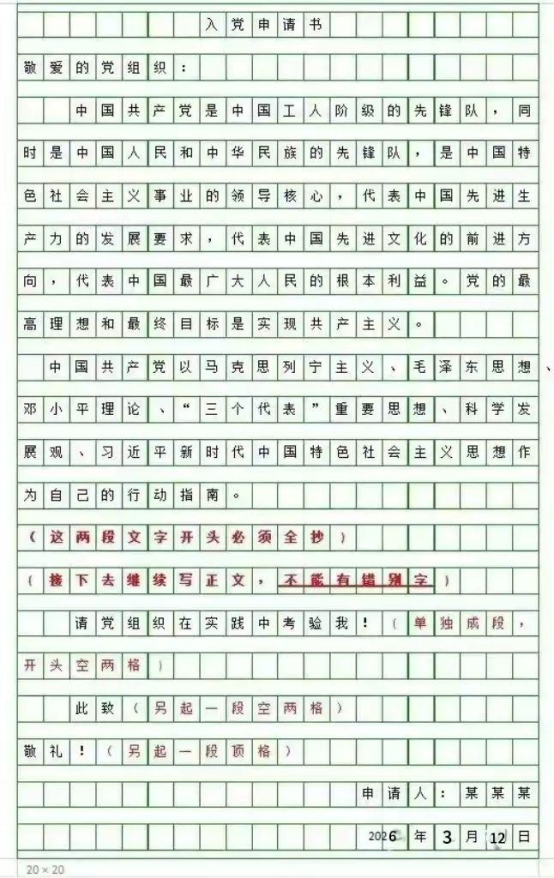 入党申请书
敬爱的党组织：
中国共产党是中国工人阶级的先锋队，同
时是中国人民和中华民族的先锋队，是中国特
色社会主义事业的领导核心，代表中国先进生
产力的发展要求，代表中国先进文化的前进方
向，代表中国最广大人民的根本利益。党的最
高理想和最终目标是实现共产主义。
中国共产党以马克思列宁主义、毛泽东思想、
邓小平理论、“三个代表”重要思想、科学发
展观、习近平新时代中国特色社会主义思想作
为自己的行动指南。
（这两段文字开头必须全抄）
（接下去继续写正文，不能有错别字）
请党组织在实践中考验我！（单独成段，
开头空两格）
此致（另起一段空两格）
敬礼！（另起一段顶格）
申请人：某某某
2026年3月12日
20×20